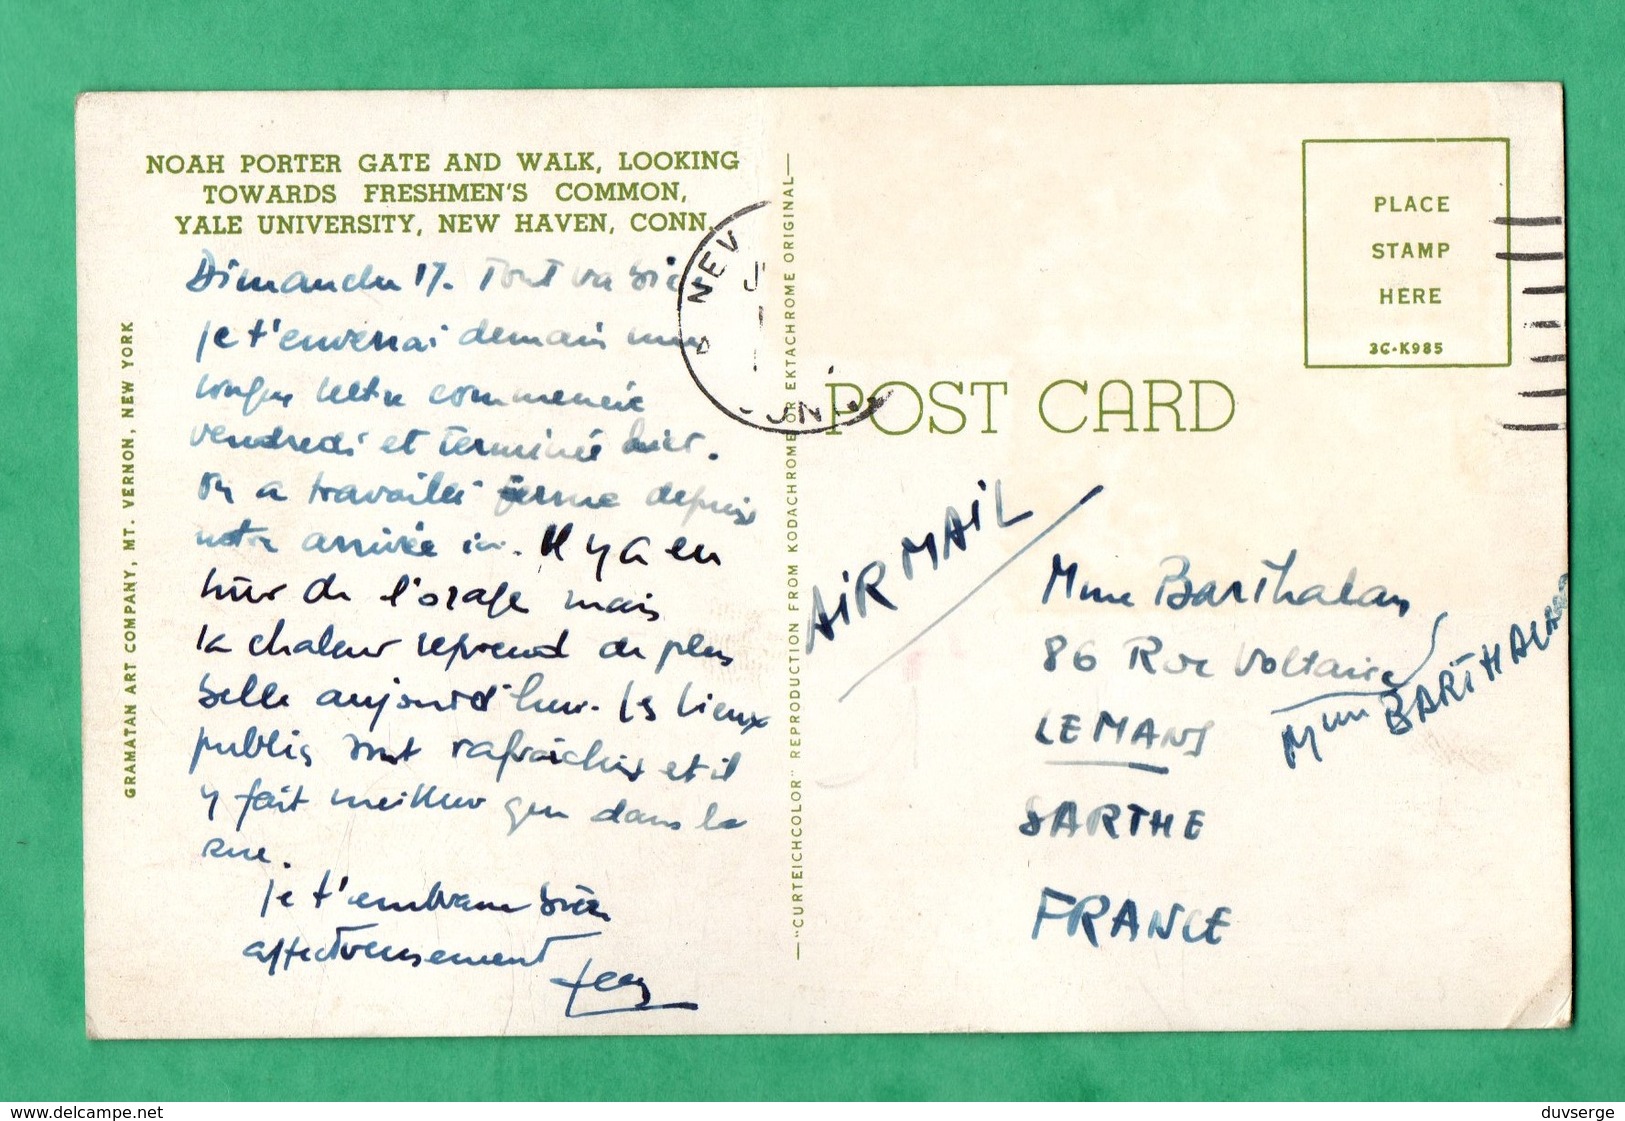 NOAH PORTER GATE AND WALK, LOOKING
TOWARDS FRESHMEN'S COMMON,
YALE UNIVERSITY, NEW HAVEN, CONN.
Dimanche 17. Tout va bien
je t'enverrai demain une
longue lettre commencée
vendredi et terminée hier.
On a travaillé ferme depuis
notre arrivée ici. Il y a eu
hier de l'orage mais
la chaleur reprend de plus
belle aujourd'hui. Les lieux
publics sont rafraichis et il
y fait meilleur que dans la
rue.
je t'embrasse bien
affectueusement
GRAMATAN ART COMPANY, MT. VERNON, NEW YORK
—"CURTEICHCOLOR" REPRODUCTION FROM KODACHROME OR EKTACHROME ORIGINAL—
NEV
POST CARD
PLACE
STAMP
HERE
3C-K985
AIR MAIL
Mme Barthalan
86 Rue Voltaire
LE MANS
SARTHE
FRANCE
Mme BARTHALAN
www.delcampe.net
duvserge